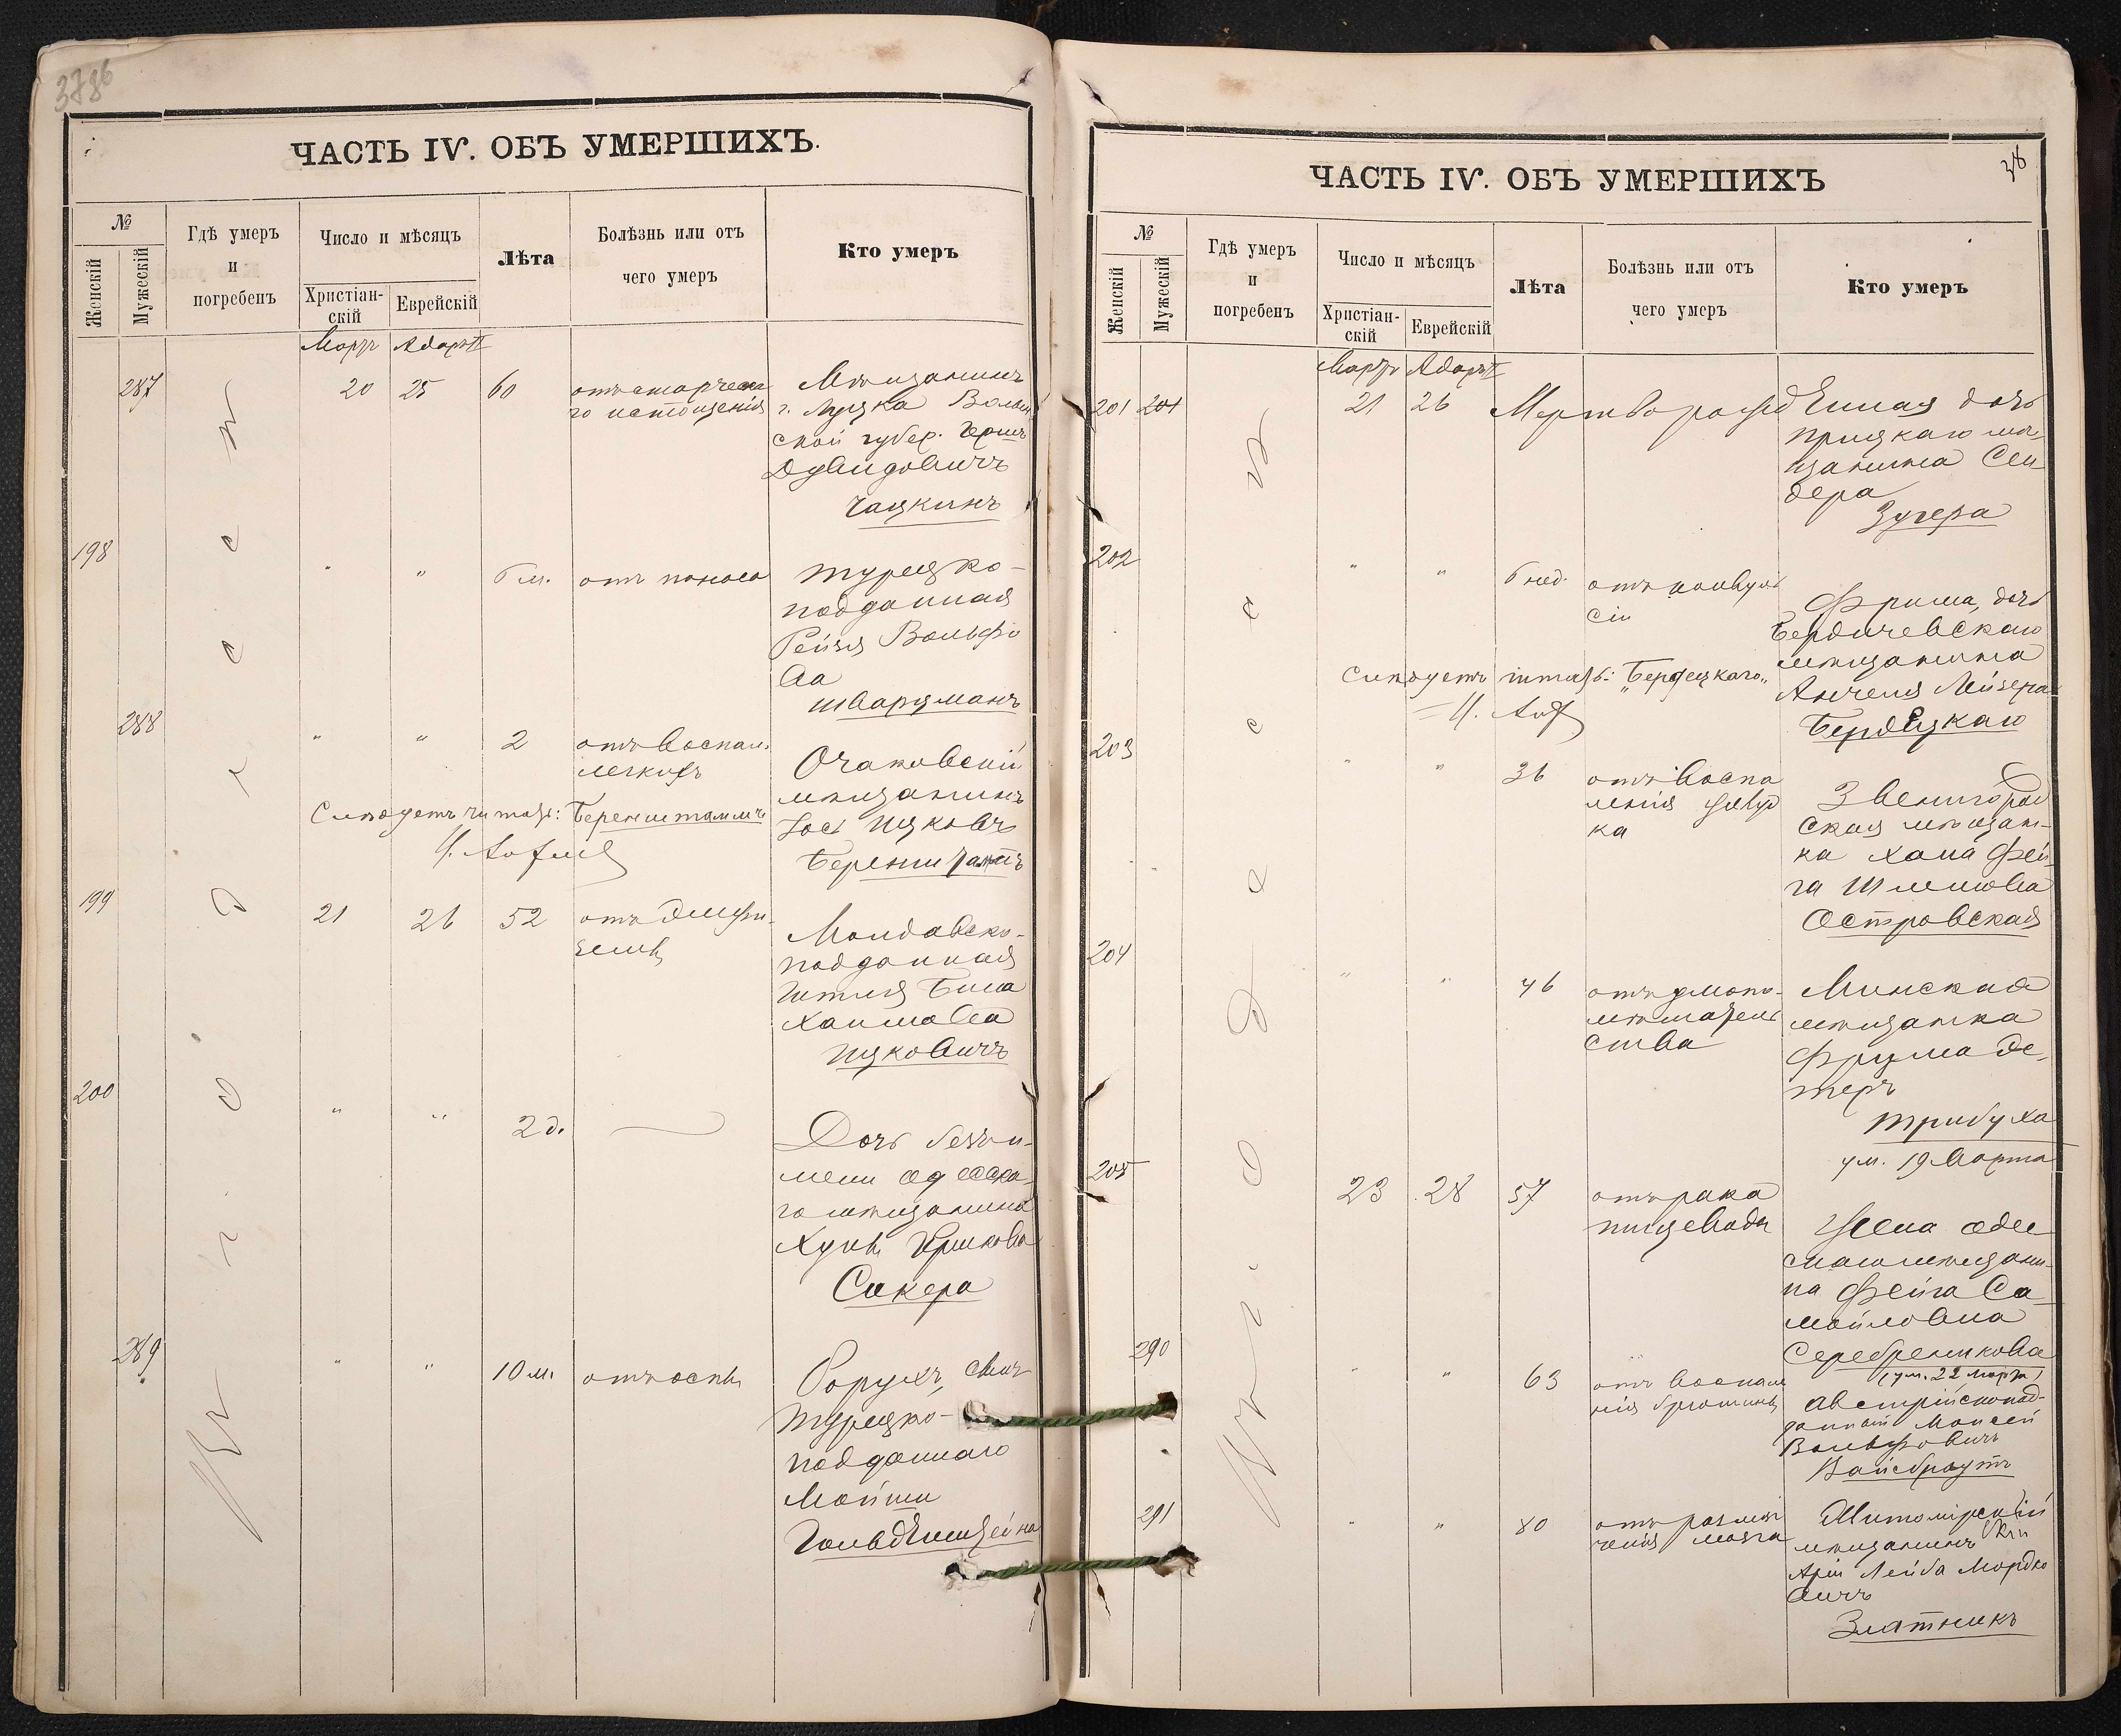 378б
ЧАСТЬ IV. ОБЪ УМЕРШИХЪ.
№
Женскій
Мужескій
Гдѣ умеръ
и
погребенъ
Число и мѣсяцъ
Христіан-
скій
Еврейскій
Лѣта
Болѣзнь или отъ
чего умеръ
Кто умеръ
Мартъ Адаръ II
287 20 25 60 отъ старческа
го истощенія
Мѣщанинъ
г. Луцка Волын
ской губер. Герш
Дувидовичъ
Чацкинъ
198 " " 6 м. отъ поноса
Турецко-
подданная
Рейзя Вольфо
ва
Шварцманъ
288 " " 2 отъ воспал.
легкихъ
Очаковскій
мѣщанинъ
Іось Ицковъ
Слѣдуетъ читать: Беренштаммъ
199 21 26 52
Молдавско-
подданная
Гитля Бина
Хаимова
Ицковичъ
200 " " 2 д.
Дочь безъ и-
мени одесска
го мѣщанина
Сикера
289 " " 10 м. отъ оспы
Борухъ, сынъ
Турецко-
подданнаго
Мойши
Гольденштейна
Въ г. Одессѣ
38
ЧАСТЬ IV. ОБЪ УМЕРШИХЪ
№
Женскій
Мужескій
Гдѣ умеръ
и
погребенъ
Число и мѣсяцъ
Христіан-
скій
Еврейскій
Лѣта
Болѣзнь или отъ
чего умеръ
Кто умеръ
Мартъ Адаръ II
201 201 21 26 Мертворожд
дочь
мѣ
щанина Сен
дера
Зугера
202 " " 6 нед. отъ конвуль
сіи
Фрима, дочь
Бердичевскаго
мѣщанина
Анчеля Лейзера
Бердецкаго
Слѣдуетъ читать: "Бердецкаго"
203 " " 36 отъ воспа
ленія желуд
ка
Звенигород
ская мѣщан-
ка Хана Фей
га Шлиомова
Островская
204 " " 46 отъ умопо-
мѣшатель
ства
Минская
мѣщанка
Фрума Де
теръ
Трибуха
ум. 19 Марта
205 23 28 57 отъ рака
пищевода
Жена одес
скаго мѣщани
на Фейга Са
мойловна
Серебренникова
(ум. 22 марта)
290 " " 63 отъ воспале
нія брюшины
Австрійскопод-
данный Моисей
Вольфовичъ
Вайсбраутъ
291 " " 80 отъ размяг
ченія мозга
Житомірскій
мѣщанинъ
Арій Лейба Мордко
вичъ
Златникъ
Въ г. Одессѣ